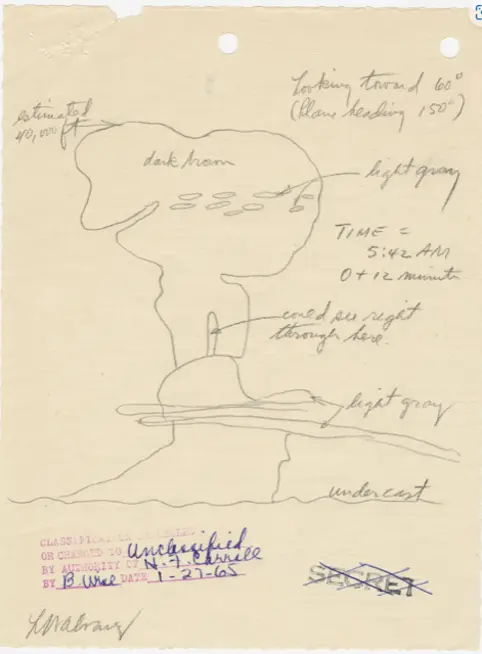 Looking toward 60°
(plane heading 150°)
estimated
40,000 ft
dark brown
light gray
TIME =
5:42 AM
0 + 12 minute
could see right
through here.
light gray
undercast
CLASSIFICATION CANCELLED
OR CHANGED TO Unclassified
BY AUTHORITY OF H. F. Carroll
BY B. DATE 1-27-65
SECRET